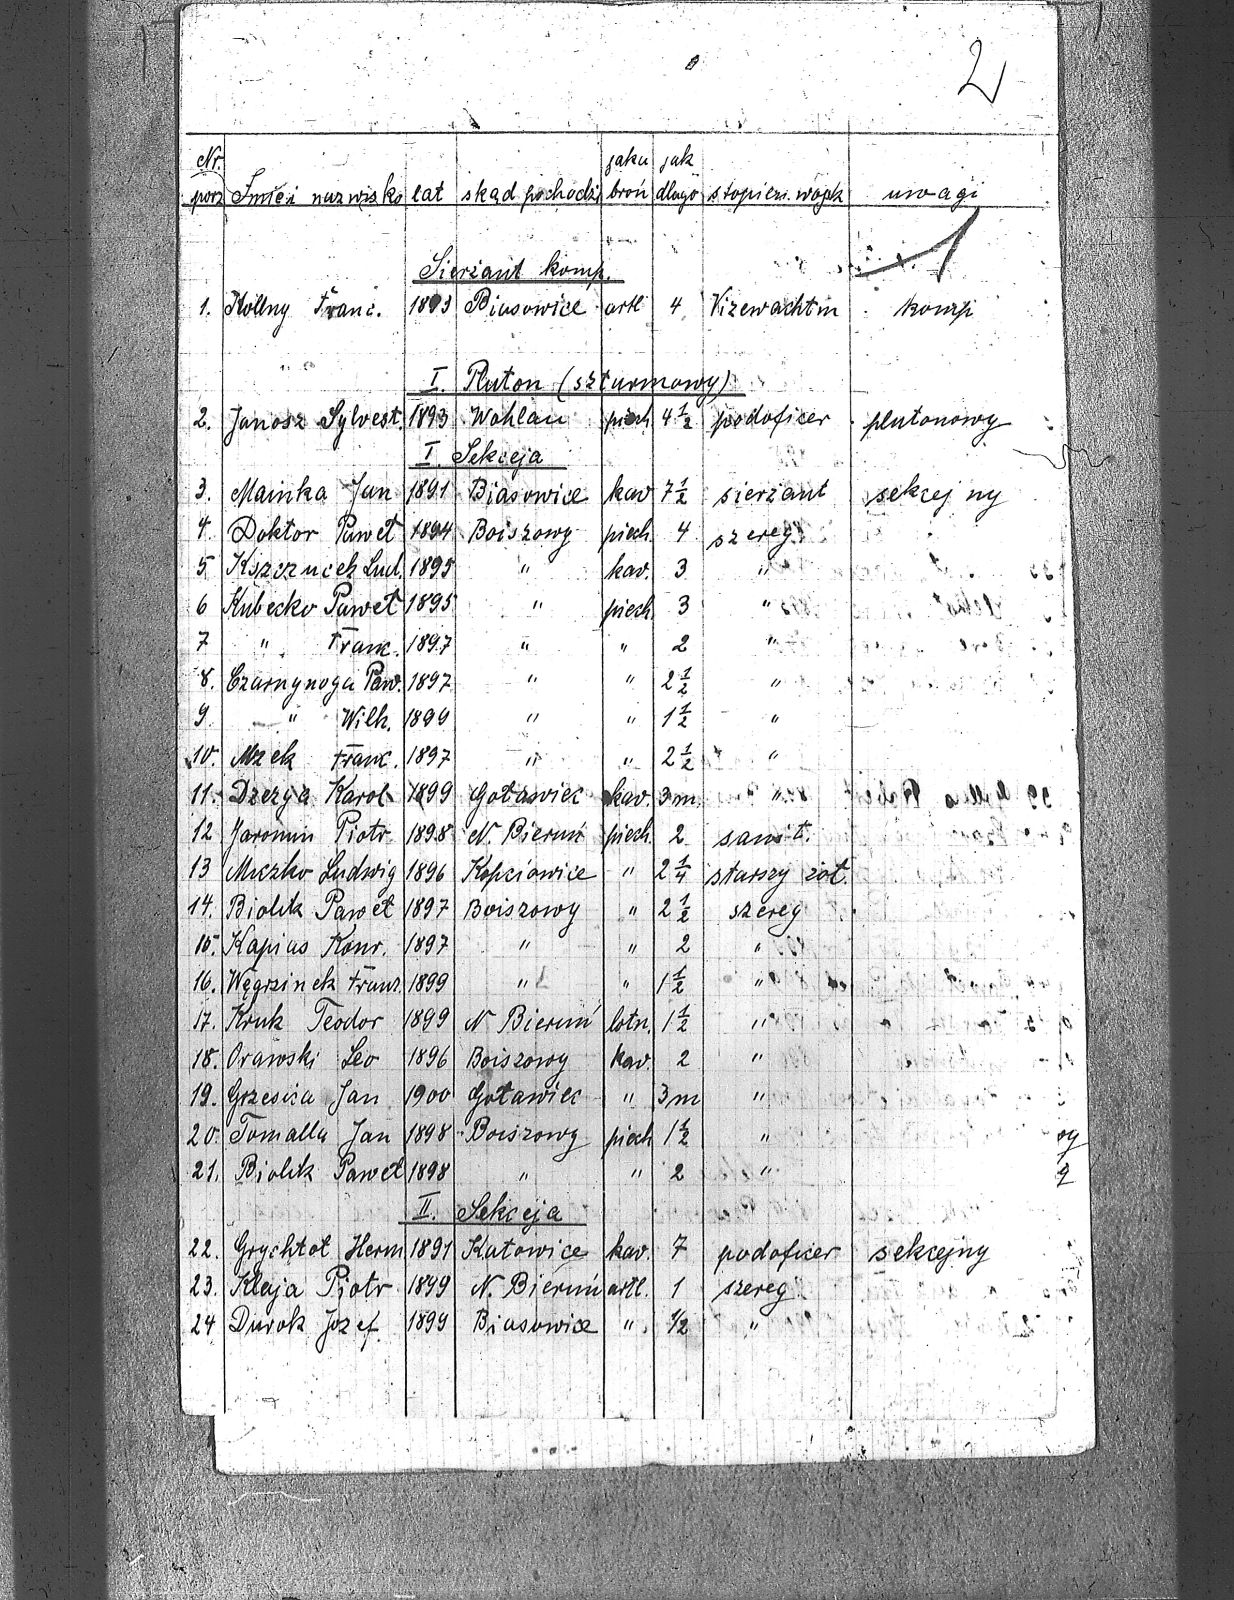 2
Nr. porz Imię i nazwisko lat skąd pochodzi jaka broń jak długo stopień wojsk uwagi
Sierżant komp.
1. Kollny Franc. 1893 Biasowice artl 4 Vizewachtm komp
I. Pluton (szturmowy)
2. Janosz Sylvest. 1893 Wohlau piech 4 1/2 podoficer plutonowy
I. Sekceja
3. Mainka Jan 1891 Biasowice kav 7 1/2 sierżant sekcejny
4. Doktor Paweł 1894 Boiszowy piech. 4 szereg.
5 Kszczuch Lud. 1895 " kav. 3 "
6 Kubecko Paweł 1895 " piech 3 "
7 " Franc. 1897 " " 2 "
8. Czarnynoga Paw. 1897 " " 2 1/2 "
9 " Wilh. 1899 " " 1 1/2 "
10. Mzek Franc. 1897 " " 2 1/2 "
11. Dzezga Karol 1899 Gotawiec kav. 3 m "
12 Jaromin Piotr 1898 N. Bieruń piech. 2 sanit.
13 Mczko Ludwig 1896 Kopciowice " 2 1/4 starszy żoł.
14. Biolik Paweł 1897 Boiszowy " 2 1/2 szereg
15. Kapias Konr. 1897 " " 2 "
16. Węgrzinek Franz 1899 " " 1 1/2 "
17. Kruk Teodor 1899 N Bieruń lotn. 1 1/2 "
18. Orawski Leo 1896 Boiszowy kav. 2 "
19. Grzesica Jan 1900 Gotawiec " 3 m "
20. Tomalla Jan 1898 Boiszowy piech 1 1/2 "
21. Biolik Paweł 1898 " " 2 "
II. Sekceja
22. Grychtoł Herm 1891 Katowice kav. 7 podoficer sekcejny
23. Klaja Piotr 1899 N. Bieruń artl. 1 szereg
24 Durok Jozef. 1899 Biasowice " 1/2 "